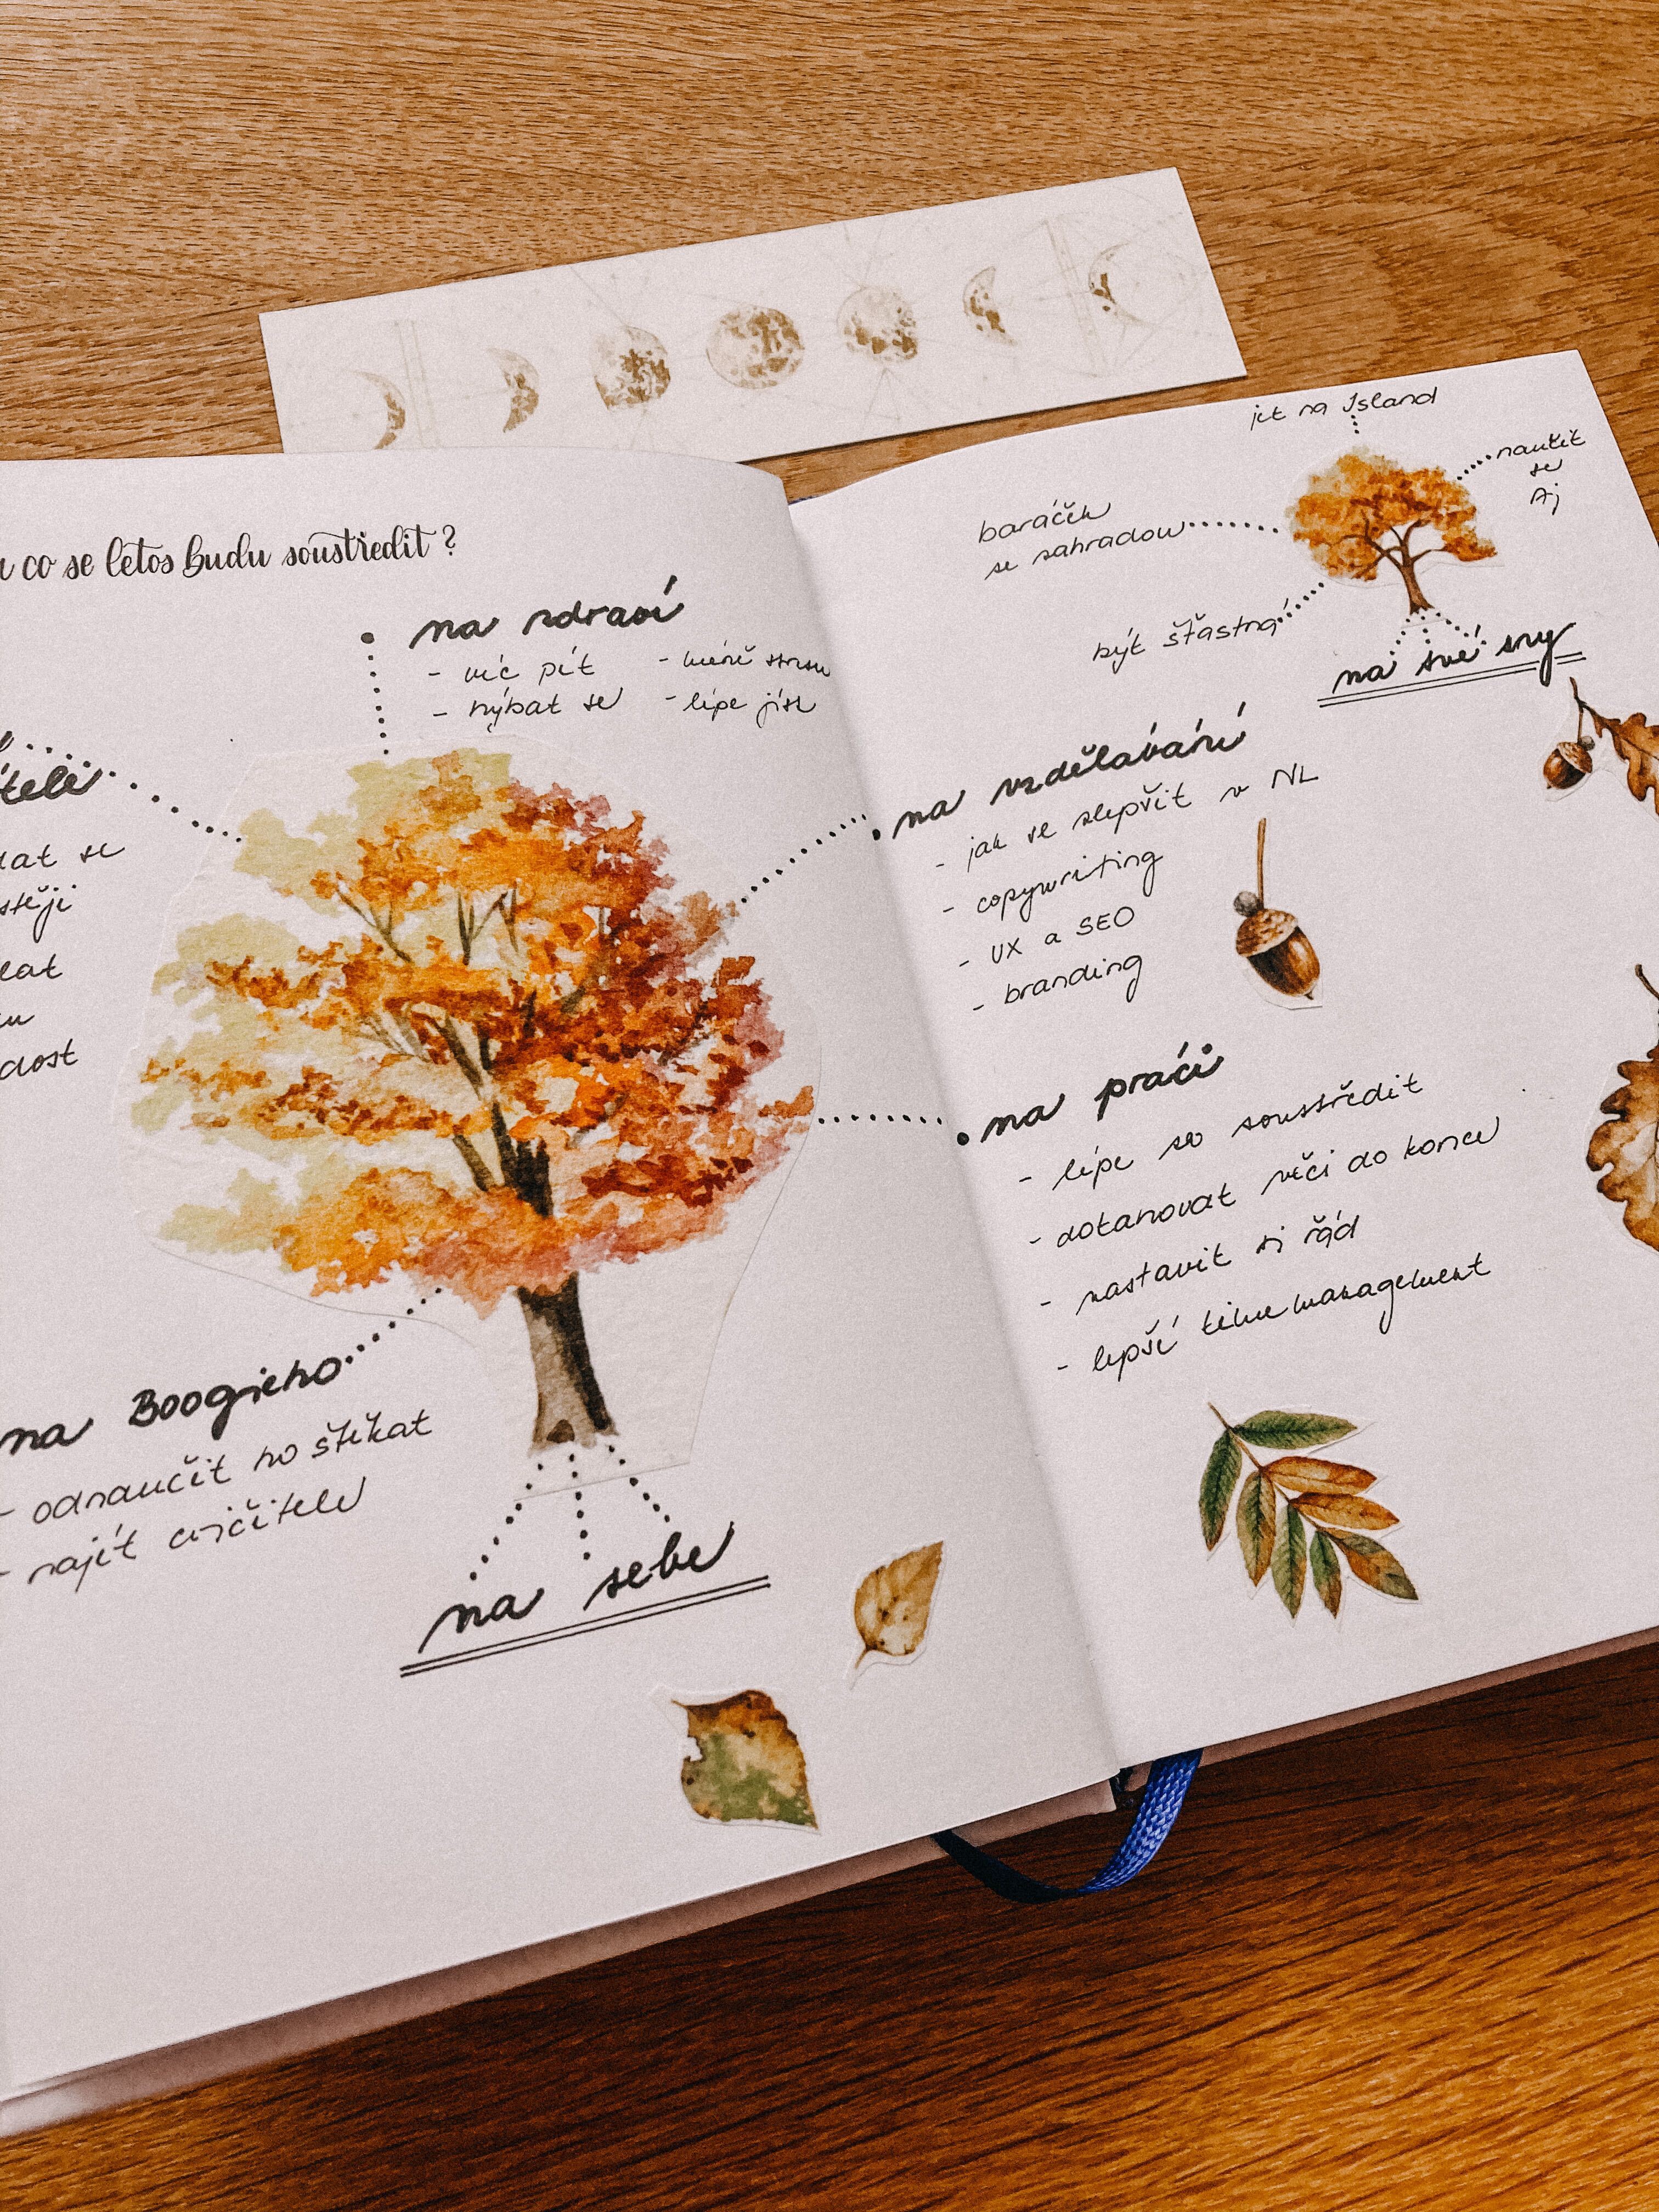 co se letos budu soustředit?
na zdraví
- víc pít
- méně stresu
- hýbat se
- lépe jíst
se
na Boogieho
- odnaučit ho štěkat
- najít cvičitele
na sebe
jet na Island
naučit
se
Aj
baráček
se zahradou
být šťastná
na své sny
na vzdělávání
- jak se zlepšit v NL
- copywriting
- UX a SEO
- branding
na práci
- lépe se soustředit
- dotahovat věci do konce
- nastavit si řád
- lepší time management